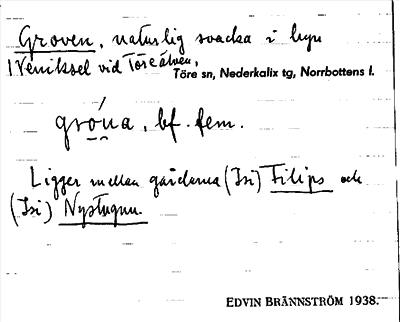 Groven, naturlig svacka i byn
Veniksel vid Töreälven,
Töre sn, Nederkalix tg, Norrbottens l.
gróna, bf. fem.
Ligger mellan gårdarna (Isi) Filips och
(Isi) Nystugun.
EDVIN BRÄNNSTRÖM 1938.